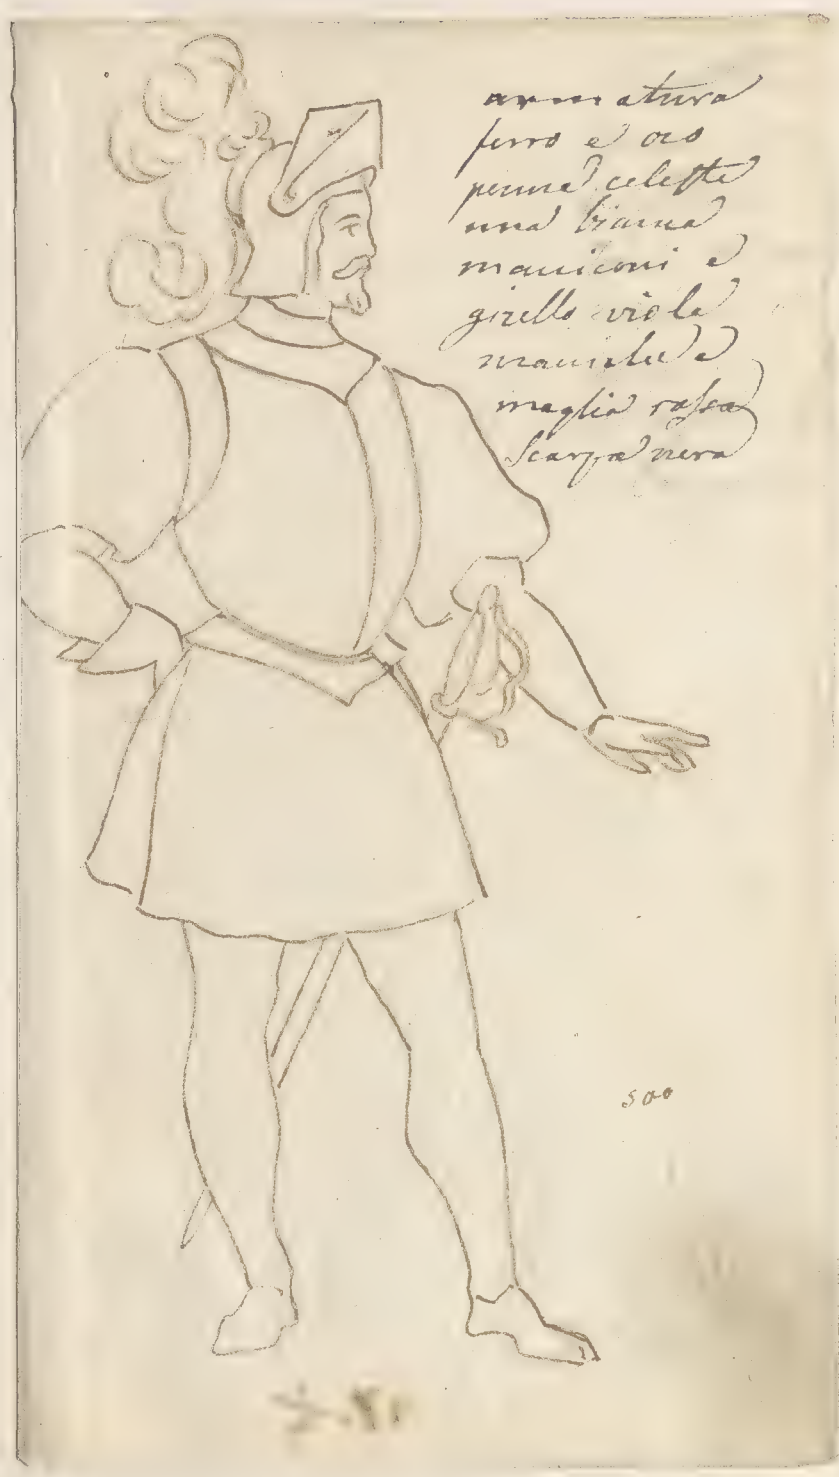 armatura
ferro e oro
penne celeste
una bianca
maniconi e
girello viola
maniche e
maglia rossa
scarpa nera
500